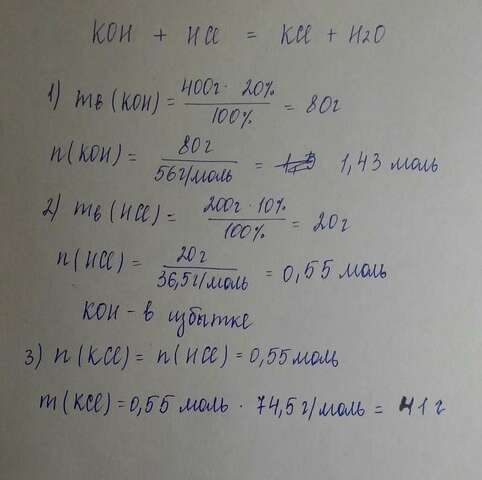 KOH + HCl = KCl + H2O
1) mв (KOH) = 400г · 20% / 100% = 80г
n(KOH) = 80г / 56г/моль = 1,43 моль
2) mв (HCl) = 200г · 10% / 100% = 20г
n(HCl) = 20г / 36,5г/моль = 0,55 моль
KOH - в избытке
3) n(KCl) = n(HCl) = 0,55 моль
m(KCl) = 0,55 моль · 74,5 г/моль = 41 г